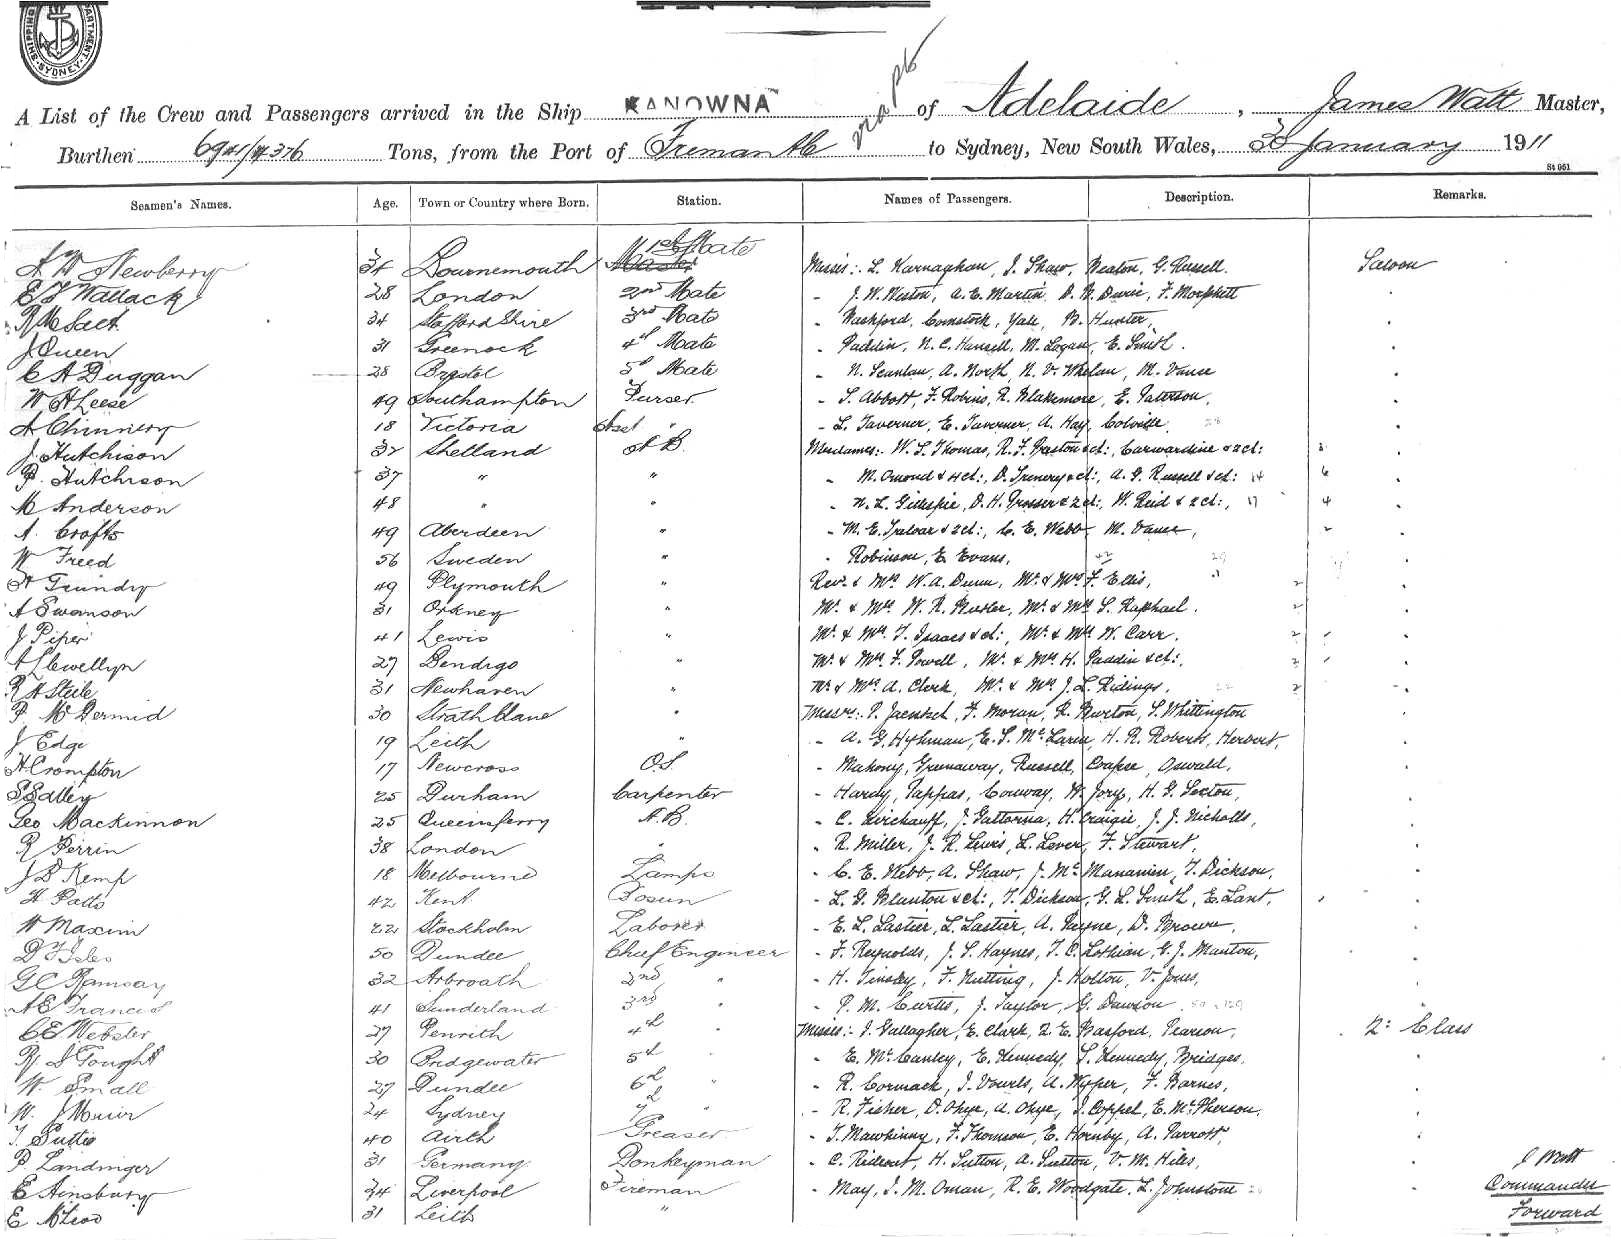 SHIPPING DEPARTMENT SYDNEY
A List of the Crew and Passengers arrived in the Ship KANOWNA of Adelaide, James Watt Master,
via pts
Burthen 6941/4376 Tons, from the Port of Fremantle to Sydney, New South Wales, 30 January 1911
St 961
Seamen's Names. Age. Town or Country where Born. Station. Names of Passengers. Description. Remarks.
A W Newberry 34 Bournemouth 1st Mate Misses:. L. Karnaghan, J. Shaw, Heaton, G. Russell. Saloon
E J Wallack 28 London 2nd Mate " J. W. Weston, A. E. Martin, F. Morphett
34 Staffordshire 3rd Mate " Comstock, Yale, B. Hunter,
J Queen 31 Greenock 4th Mate " Paddin, N. C. Hansell, M. Logan, E. Smith.
C A Duggan 28 Bristol 5th Mate " N. Scanlan, A. North, N. V. Whelan, M. Vance
W H Leese 49 Southampton Purser " S. Abbott, F. Robins, R. Blakemore, E. Paterson,
A Chinnery 18 Victoria Asst " " L. Taverner, E. Taverner, A. Hay, Colville
J Hutchison 32 Shetland A B Mesdames:. W. S. Thomas, R. F. Preston & ch:, Carwardine & 2 ch: 3
P. Hutchison 37 " " " M. Omond & 4 ch:, D. Trenery & ch:, A. G. Russell & ch: 14 6
M Anderson 48 " " " N. L. Gillespie, D. H. Prosser & 2 ch:, W. Reid & 2 ch:, 17 4
A. Crofts 49 Aberdeen " " M. E. & 2 ch:, C. E. Webb, M. Vance, 2
W Freed 56 Sweden " " Robinson, E. Evans,
Grundy 49 Plymouth " Rev. & Mrs W. A. Dunn, Mr. & Mrs F. Ellis, 2
A Swanson 31 Orkney " Mr. & Mrs W. R. Butler, Mr. & Mrs S. Raphael. 2
J Piper 41 Lewis " Mr. & Mrs T. Isaacs & ch:, Mr. & Mrs W. Carr. 2
A Llewellyn 27 Bendigo " Mr. & Mrs F. Powell, Mr. & Mrs H. Paddin & ch:, 2
R A Steele 31 Newhaven " Mr. & Mrs A. Clark, Mr. & Mrs J. L. Ridings, 2
P McDermid 30 Strathblane " Messrs:. P. Jaentsch, F. Moran, R. Burton, S. Whittington
J Edge 19 Leith " " A. G. Hyhman, E. S. McLaren, H. R. Roberts, Herbert,
H Crompton 17 Newcross O.S. " Mahony, Greenaway, Russell, Oswald,
S Edley 25 Durham Carpenter " Hardy, Pappas, Conway, W. Jory, H. G. Sexton,
Geo Mackinnon 25 Queensferry A.B. " C. Kirchauff, J. Gattorna, H. Craigie, J. J. Nicholls,
R Perrin 38 London " " R. Miller, J. R. Lewis, L. Lever, F. Stewart,
J D Kemp 18 Melbourne Lamps " C. E. Webb, A. Shaw, J. McManamin, T. Dickson,
H Patts 42 Kent Bosun " L. G. Blunton & ch:, T. Dickson, G. L. Smith, E. Lant,
W Maxim 22 Stockholm Laborer " E. L. Lastier, L. Lastier, A. Payne, D. Brown,
D J Isles 50 Dundee Chief Engineer " F. Reynolds, J. S. Haynes, T. C. Lothian, G. J. Manton,
G C Ramsay 32 Arbroath 2nd " " H. Tinsley, F. Nutting, J. Holton, V. Jones,
A E Francis 41 Sunderland 3rd " " P. M. Curtis, J. Taylor, G. Dawson
C E Webster 27 Penrith 4th " Misses:. J. Gallagher, E. Clark, Basford, Pearson, 2: Class
30 Bridgewater 5th " " E. McCauley, E. Kennedy, S. Kennedy, Bridges,
W. Small 27 Dundee 6th " " R. Cormack, J. Vourls, A. Wyper, F. Barnes,
W. J Muir 24 Sydney 7 " " R. Fisher, O. Ohye, A. Ohye, J. Coppel, E. McPherson,
T. Suttie 40 Airth Greaser " J. Mawhinny, F. Thomson, E. Hornby, A. Parrott,
P. Landinger 31 Germany Donkeyman " C. Rideout, H. Sutton, A. Sutton, V. M. Hiles, J Watt
E Ainsbury 24 Liverpool Fireman " May, J. M. Oman, R. E. Woodgate, L. Johnstone Commander
E McLeod 31 Leith " Forward